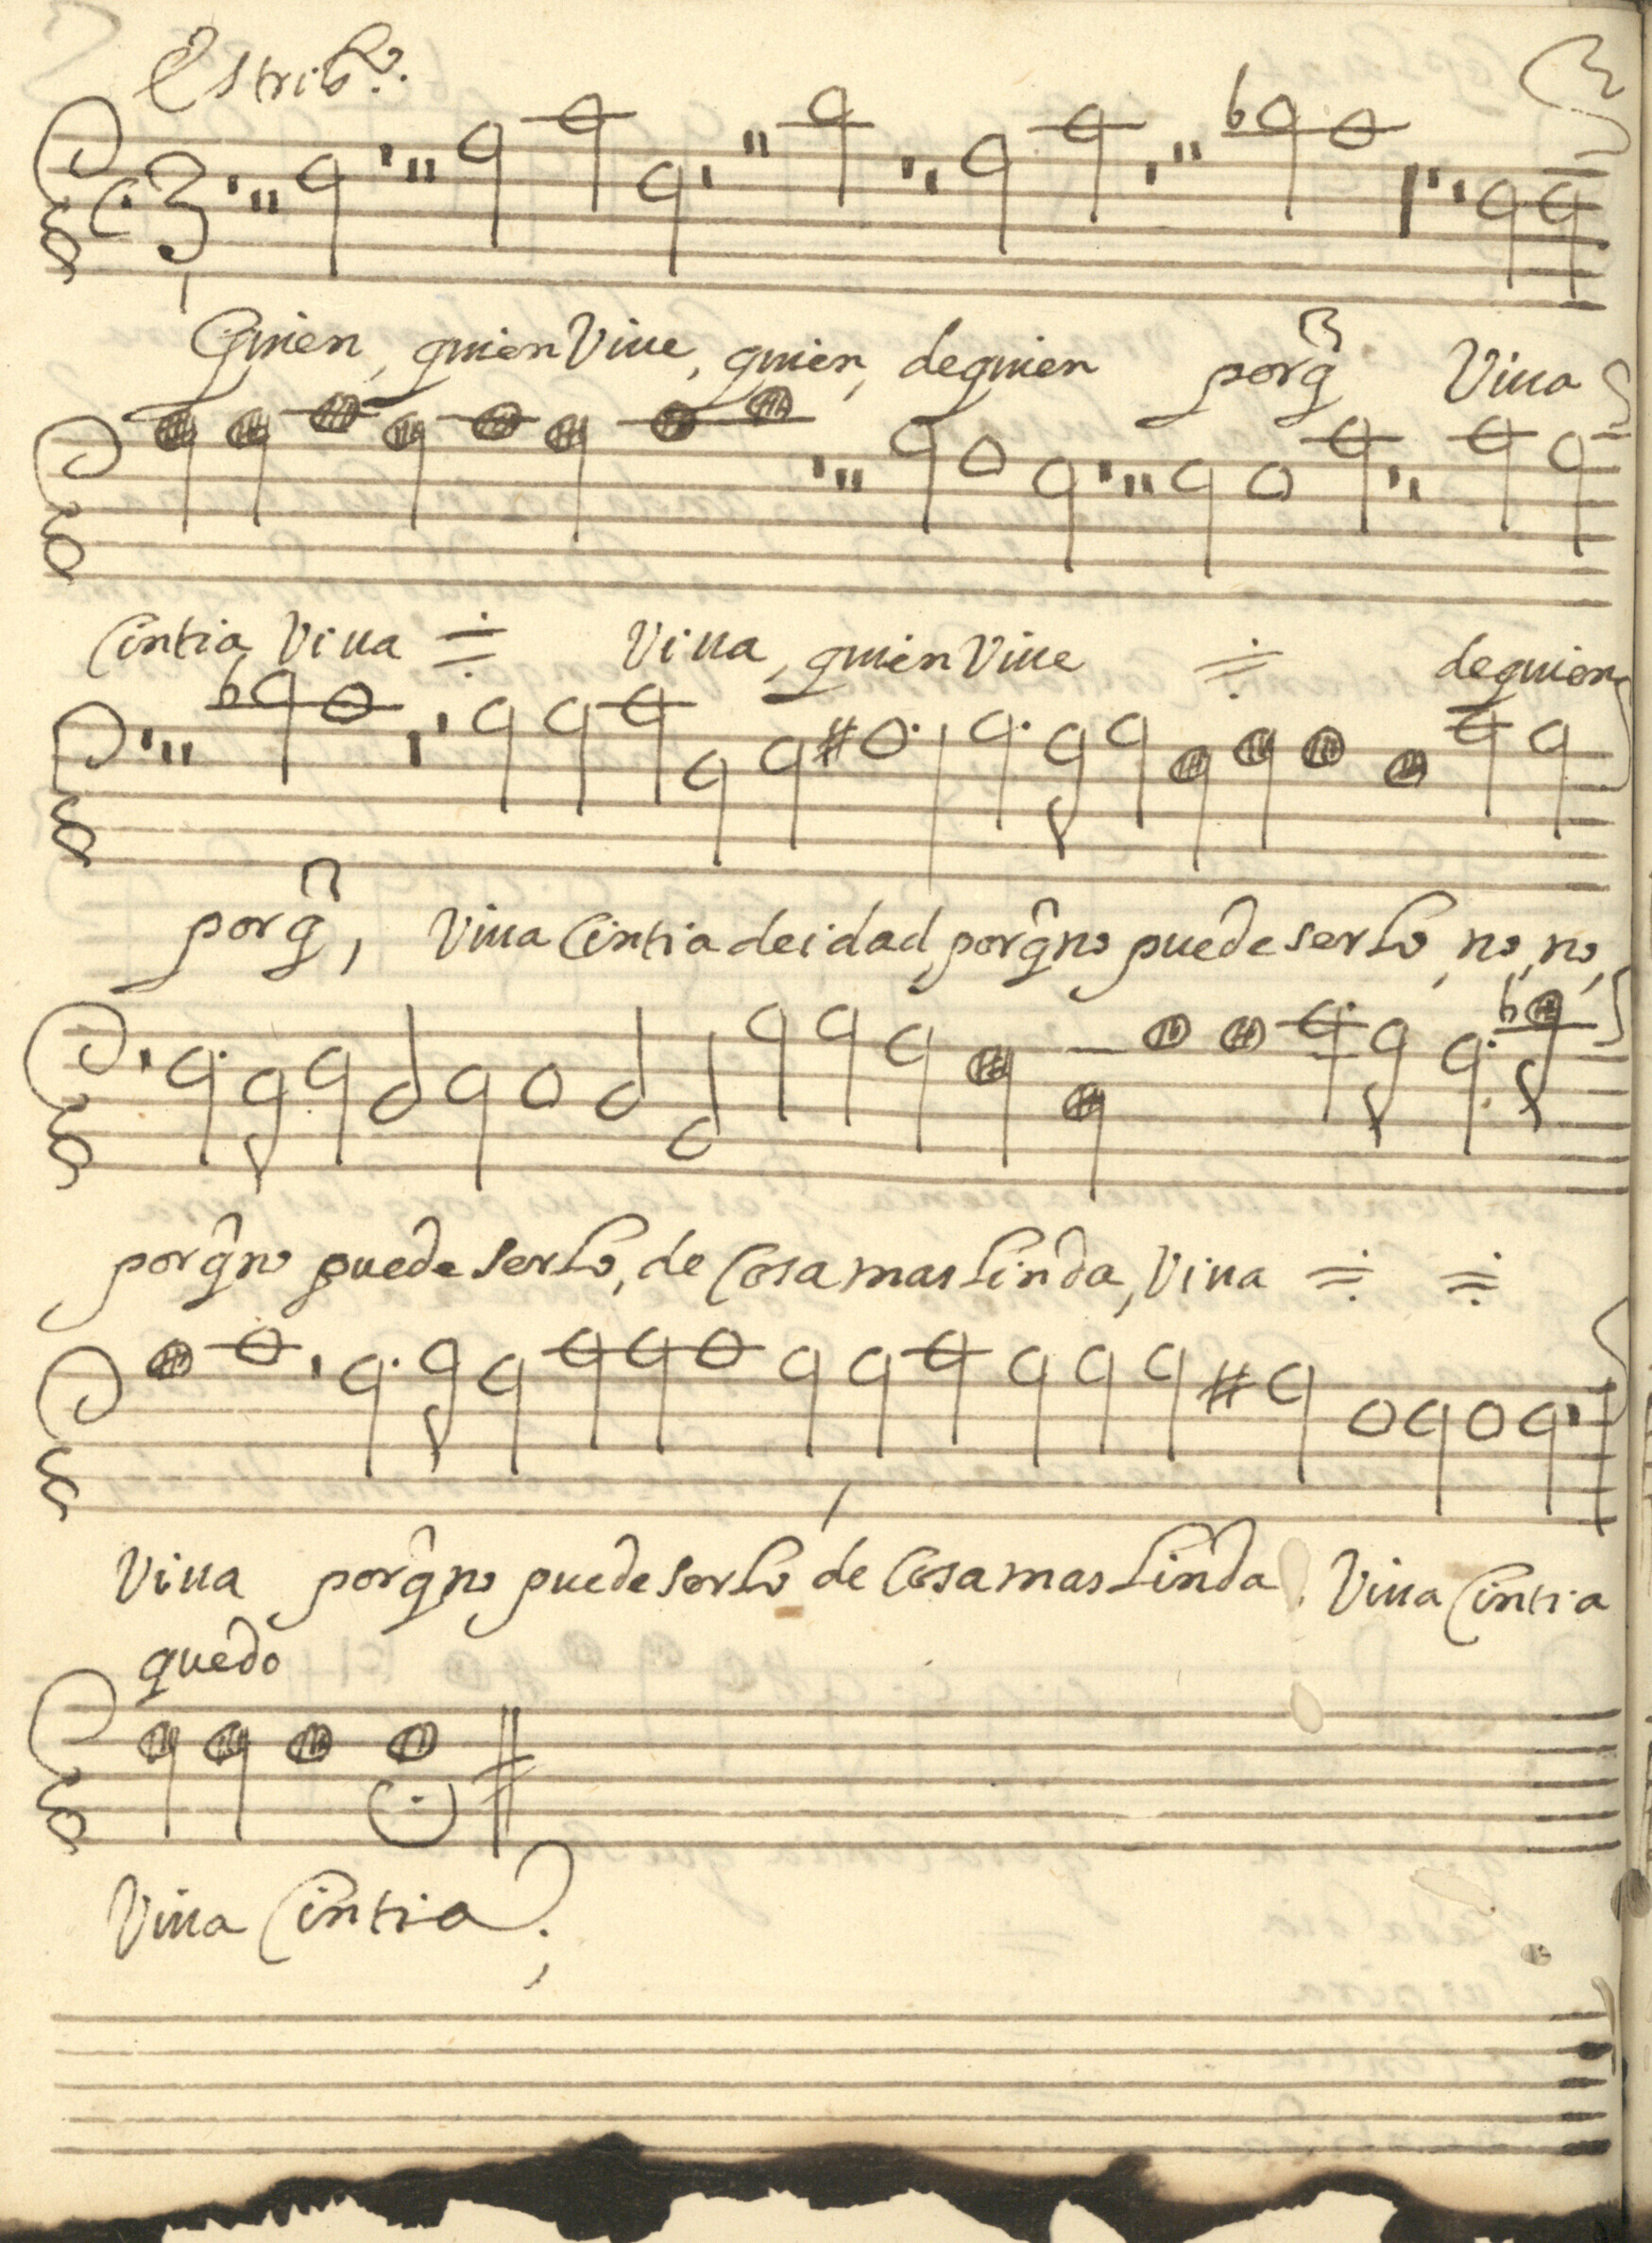 Estribº.
Quien, quien Viue, quien, dequien porq̃ Viua
Cintia, Viua Viua, quien Viue dequien
porq̃, Viua Cintia deidad, porq̃ no puede serlo, no, no,
porq̃ no puede serlo, de Cosa mas linda, Viua
Viua porq̃ no puede serlo de Cosa mas linda, Viua Cintia
quedo
Viua Cintia.